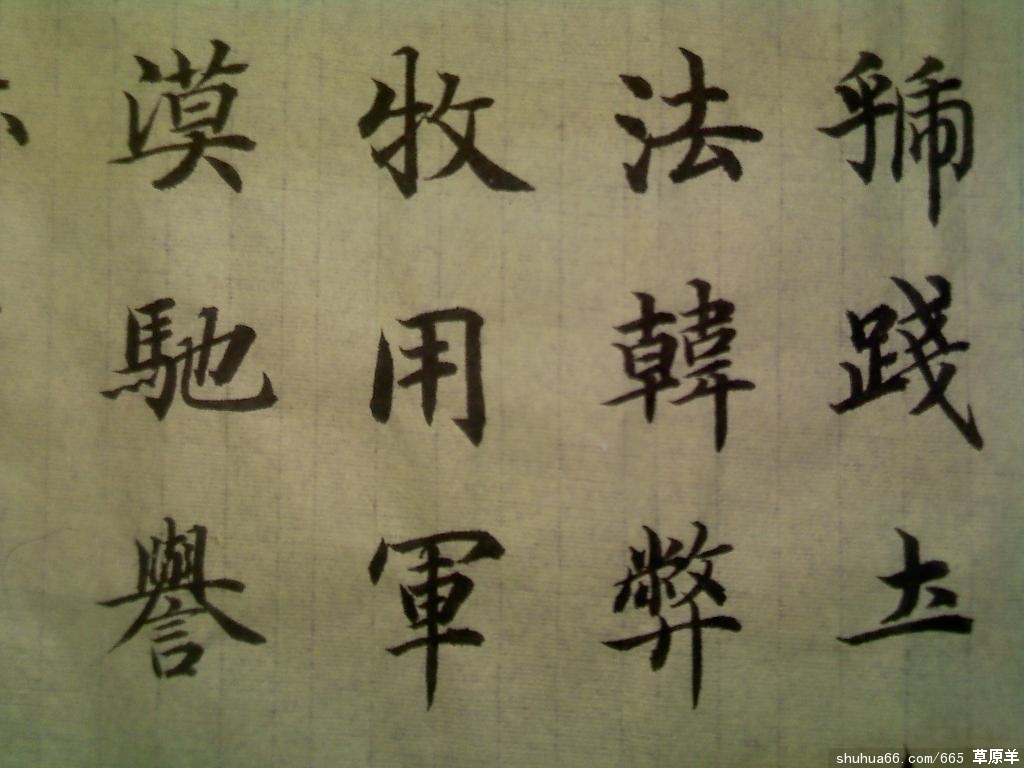 虢踐圡
法韓弊
牧用軍
漠馳譽
shuhua66.com/665 草原羊